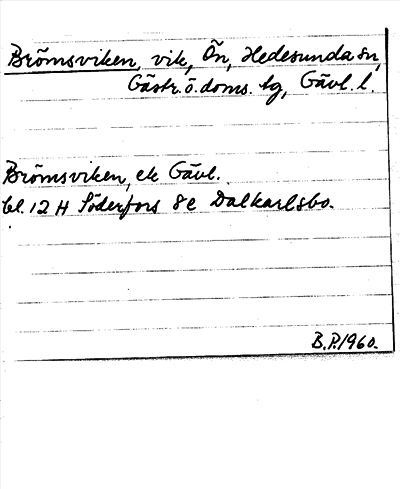 Brömsviken, vik, Ön, Hedesunda sn,
Gästr. ö. doms. tg, Gävl. l.
Brömsviken, ek Gävl.
bl. 12 H Söderfors 8e Dalkarlsbo.
B.P. 1960.